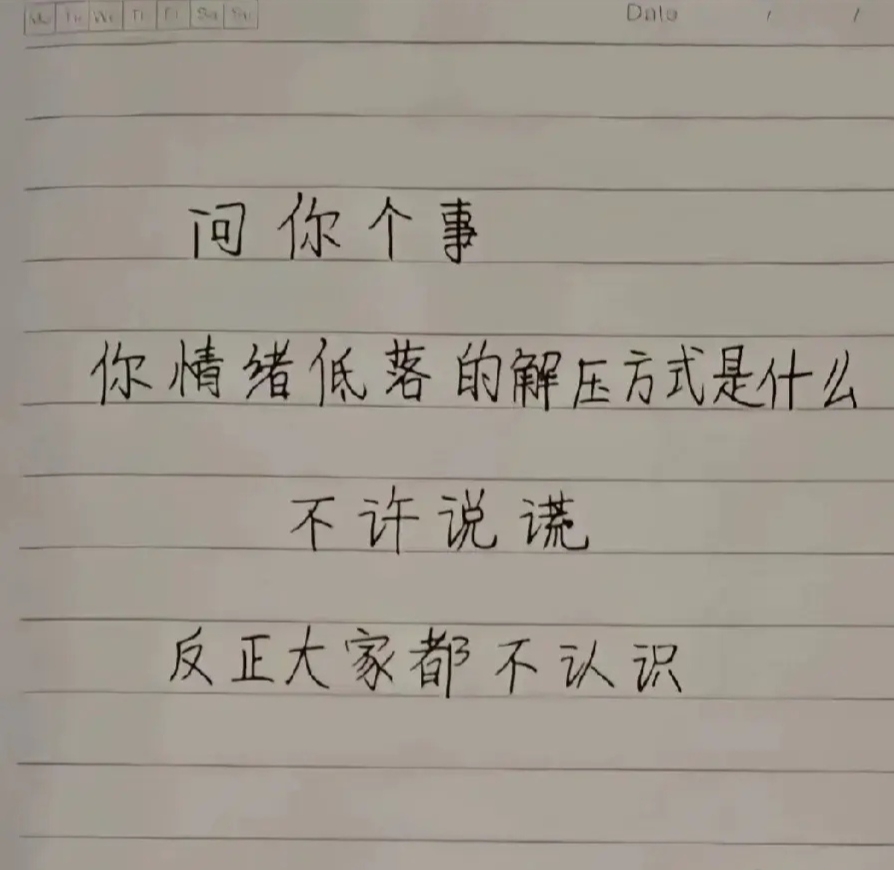 Mo Tu We Th Fr Sa Su
Date / /
问你个事
你情绪低落的解压方式是什么
不许说谎
反正大家都不认识